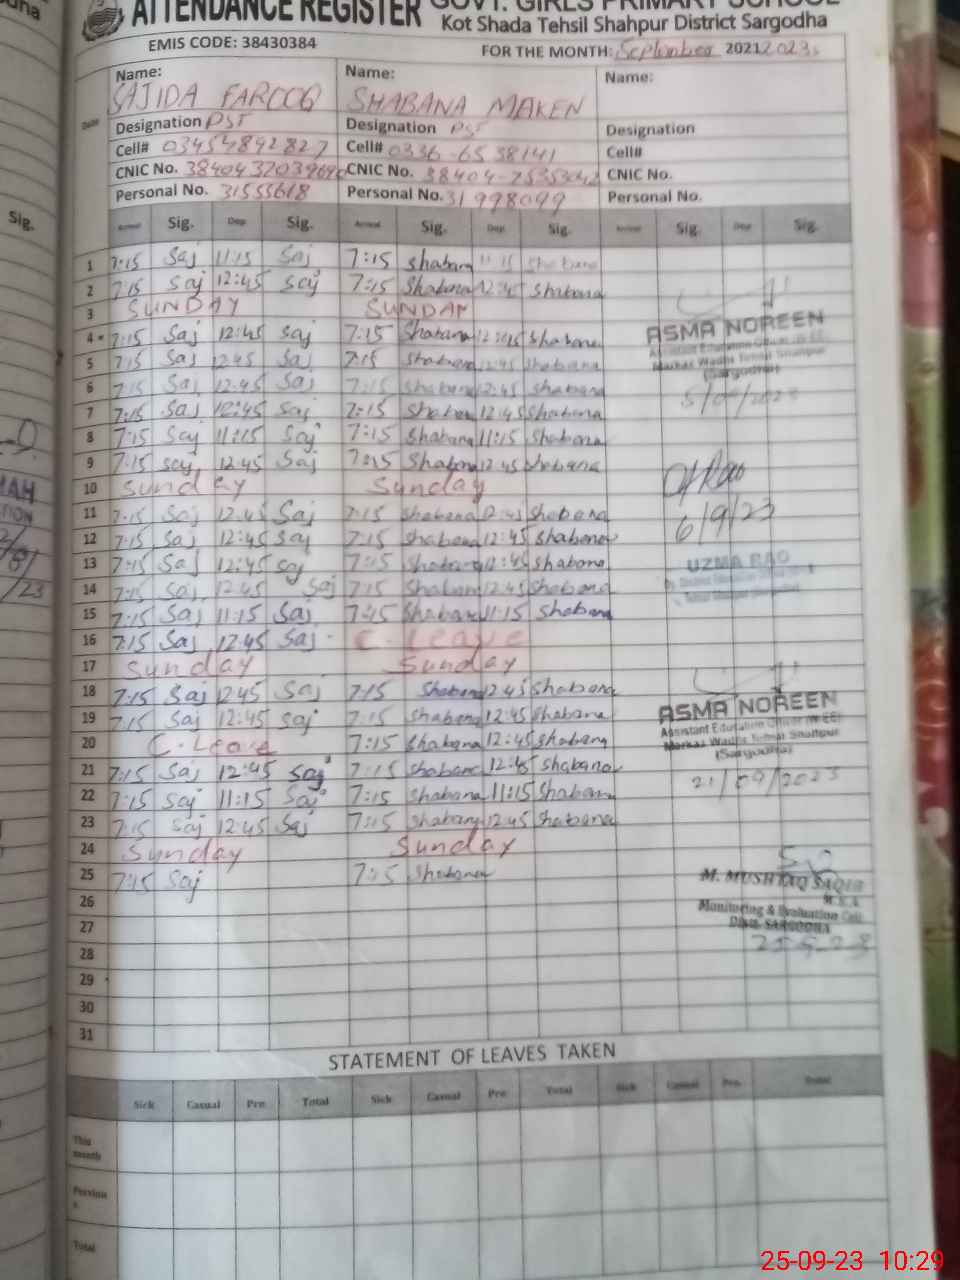 ATTENDANCE REGISTER GOVT. GIRLS PRIMARY SCHOOL
Kot Shada Tehsil Shahpur District Sargodha
EMIS CODE: 38430384 FOR THE MONTH: September 2021 2023
Date Name: Name: Name:
SAJIDA FAROOQ SHABANA MAKEN
Designation PST Designation PST Designation
Cell# 03454892827 Cell# 0336-6538141 Cell#
CNIC No. CNIC No. CNIC No.
Personal No. 31555618 Personal No. 31998099 Personal No.
Arrival Sig. Dep. Sig. Arrival Sig. Dep. Sig. Arrival Sig. Dep. Sig.
1 7:15 Saj 11:15 Saj 7:15 Shabana 11:15 Shabana
2 7:15 Saj 12:45 Saj 7:15 Shabana 12:45 Shabana
3 SUNDAY SUNDAY
4 7:15 Saj 12:45 Saj 7:15 Shabana 12:45 Shabana
5 7:15 Saj 12:45 Saj 7:15 Shabana 12:45 Shabana
6 7:15 Saj 12:45 Saj 7:15 Shabana 12:45 Shabana
7 7:15 Saj 12:45 Saj 7:15 Shabana 12:45 Shabana
8 7:15 Saj 11:15 Saj 7:15 Shabana 11:15 Shabana
9 7:15 Saj 12:45 Saj 7:15 Shabana 12:45 Shabana
10 Sunday Sunday
11 7:15 Saj 12:45 Saj 7:15 Shabana 12:45 Shabana
12 7:15 Saj 12:45 Saj 7:15 Shabana 12:45 Shabana
13 7:15 Saj 12:45 Saj 7:15 Shabana 12:45 Shabana
14 7:15 Saj 12:45 Saj 7:15 Shabana 12:45 Shabana
15 7:15 Saj 11:15 Saj 7:15 Shabana 11:15 Shabana
16 7:15 Saj 12:45 Saj C. Leave
17 Sunday Sunday
18 7:15 Saj 12:45 Saj 7:15 Shabana 12:45 Shabana
19 7:15 Saj 12:45 Saj 7:15 Shabana 12:45 Shabana
20 C. Leave 7:15 Shabana 12:45 Shabana
21 7:15 Saj 12:45 Saj 7:15 Shabana 12:45 Shabana
22 7:15 Saj 11:15 Saj 7:15 Shabana 11:15 Shabana
23 7:15 Saj 12:45 Saj 7:15 Shabana 12:45 Shabana
24 Sunday Sunday
25 7:15 Saj 7:15 Shabana
26
27
28
29
30
31
ASMA NOREEN
Assistant Education Officer (W-EE)
Markaz Wadhi Tehsil Shahpur
(Sargodha)
5/09/2023
6/9/23
UZMA RAO
ASMA NOREEN
Assistant Education Officer (W-EE)
Markaz Wadhi Tehsil Shahpur
(Sargodha)
21/09/2023
M. MUSHTAQ SAQIB
M.E.A
Monitoring & Evaluation Cell
Distt. SARGODHA
25-9-23
STATEMENT OF LEAVES TAKEN
Sick Casual Pre Total Sick Casual Pre Total Sick Casual Pre. Total
This month
Previous
Total
Sig.
25-09-23 10:29